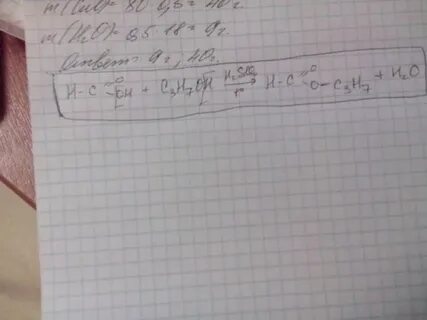 m(CuO)= 80·0,5= 40г
m(H₂O)= 0,5·18= 9г
Ответ: 9г; 40г.
H-C=O OH + C₃H₇OH H₂SO₄ t° → H-C=O O-C₃H₇ + H₂O